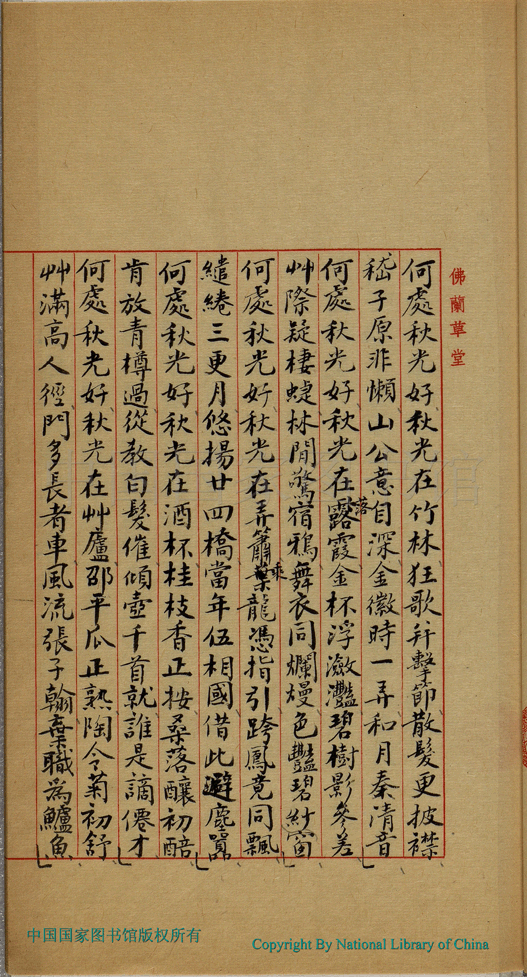 佛蘭草堂
何處秋光好秋光在竹林狂歌并擊節散髮更披襟
嵇子原非懶山公意自深金徽時一弄和月奏清音
何處秋光好秋光在落霞金杯浮瀲灩碧樹影參差
艸際疑棲蜨林間驚宿鴉舞衣同爛熳色豔碧紗窗
何處秋光好秋光在弄簫乘龍憑指引跨鳳竟同飄
繾綣三更月悠揚廿四橋當年伍相國借此避塵囂
何處秋光好秋光在酒杯桂枝香正按桑落釀初醅
肯放青樽過從教白髮催傾壺千首就誰是謫僊才
何處秋光好秋光在艸廬邵平瓜正熟陶令菊初舒
艸滿高人徑門多長者車風流張子翰棄職為鱸魚
中国国家图书馆版权所有
Copyright By National Library of China